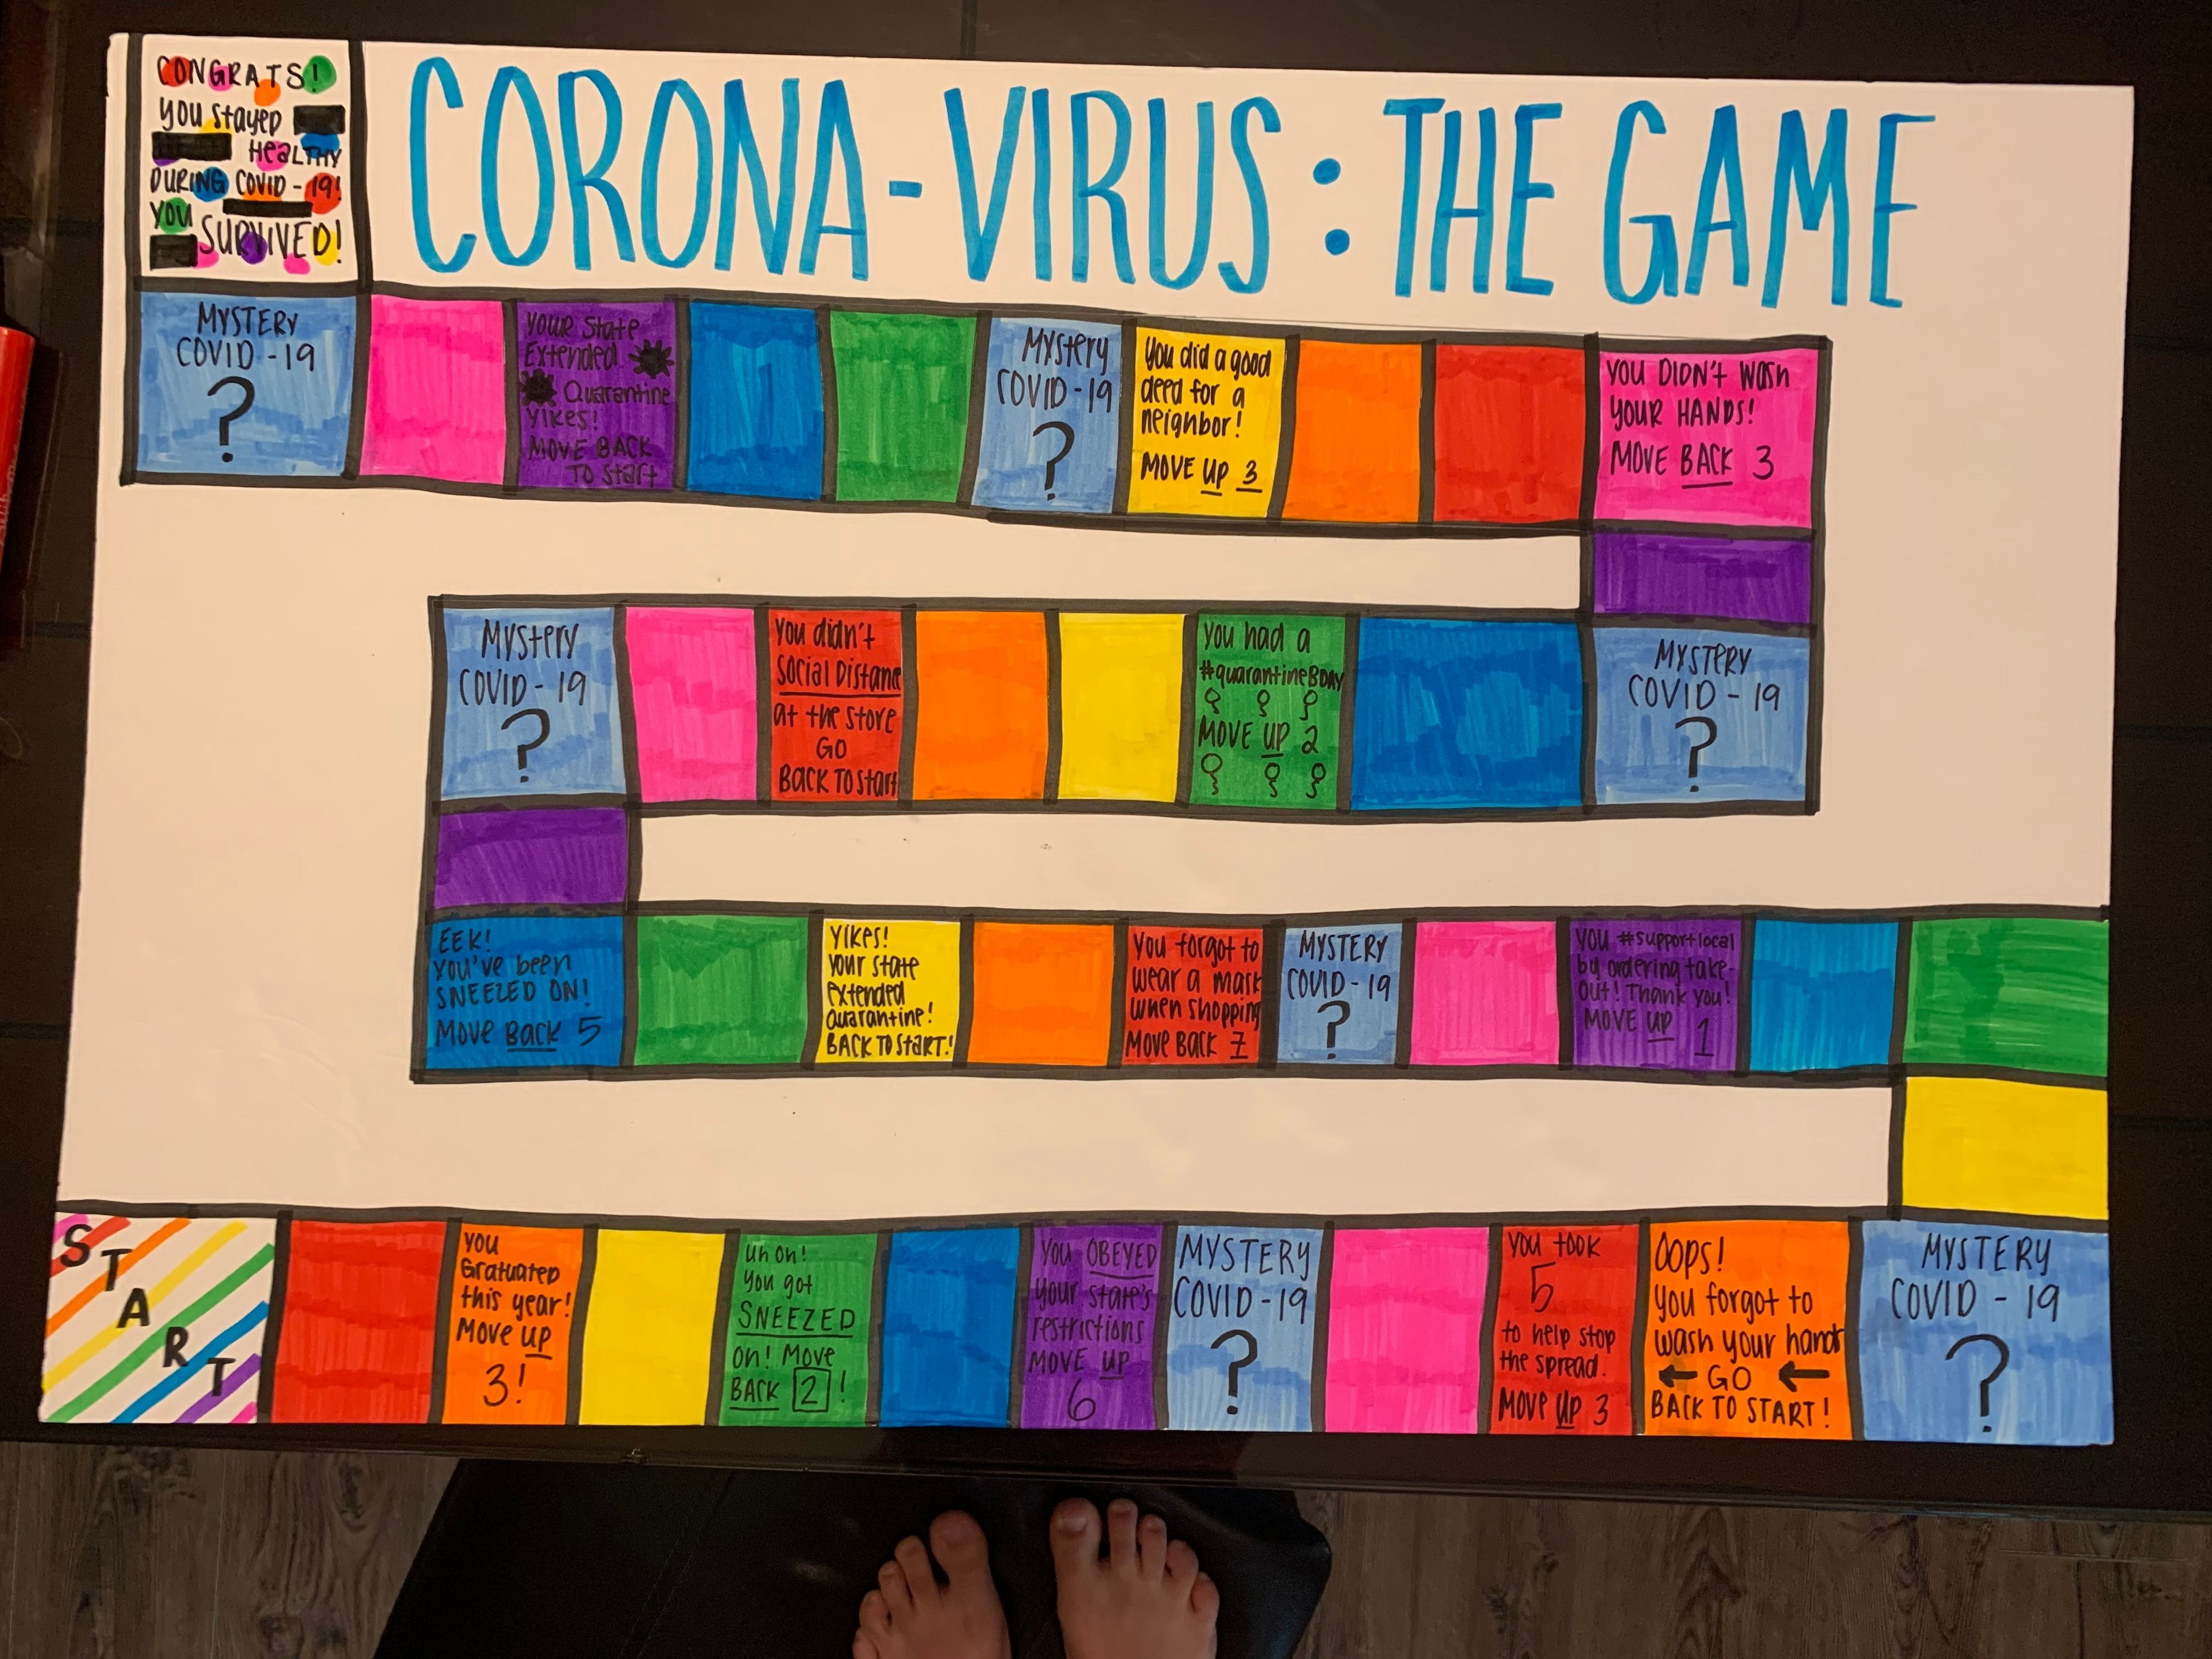 CONGRATS!
YOU STAYED
HEALTHY
DURING COVID-19!
YOU
SURVIVED!
CORONA-VIRUS: THE GAME
MYSTERY
COVID-19
?
YOUR State
Extended
Quarantine
YIKES!
MOVE BACK
TO START
MYSTERY
COVID-19
?
You did a good
deed for a
neighbor!
MOVE UP 3
YOU DIDN'T WASH
YOUR HANDS!
MOVE BACK 3
MYSTERY
COVID-19
?
You didn't
SOCIAL DISTANCE
at the store
GO
BACK TO START
you had a
#quarantineBDAY
MOVE UP 2
MYSTERY
COVID-19
?
EEK!
YOU'VE been
SNEEZED ON!
MOVE BACK 5
YIKES!
YOUR STATE
EXTENDED
Quarantine!
BACK TO START!
You forgot to
wear a mask
when shopping
MOVE BACK 7
MYSTERY
COVID-19
?
YOU #supportlocal
by ordering take-
out! Thank you!
MOVE UP 1
START
YOU
GRATUATED
this year!
MOVE UP
3!
UH OH!
You got
SNEEZED
on! MOVE
BACK 2!
YOU OBEYED
your state's
restrictions
MOVE UP
6
MYSTERY
COVID-19
?
YOU TOOK
5
to help stop
the spread.
MOVE UP 3
OOPS!
you forgot to
wash your hands
← GO ←
BACK TO START!
MYSTERY
COVID-19
?